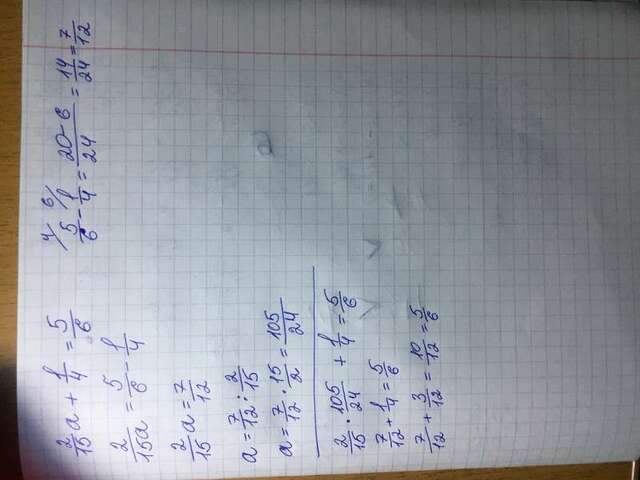 2/15 a + 1/4 = 5/6
2/15a = 5/6 - 1/4
2/15 a = 7/12
a = 7/12 : 2/15
a = 7/12 · 15/2 = 105/24
2/15 · 105/24 + 1/4 = 5/6
7/12 + 1/4 = 5/6
7/12 + 3/12 = 10/12 = 5/6
4/ 6/
5/6 - 1/4 = 20-6/24 = 14/24 = 7/12